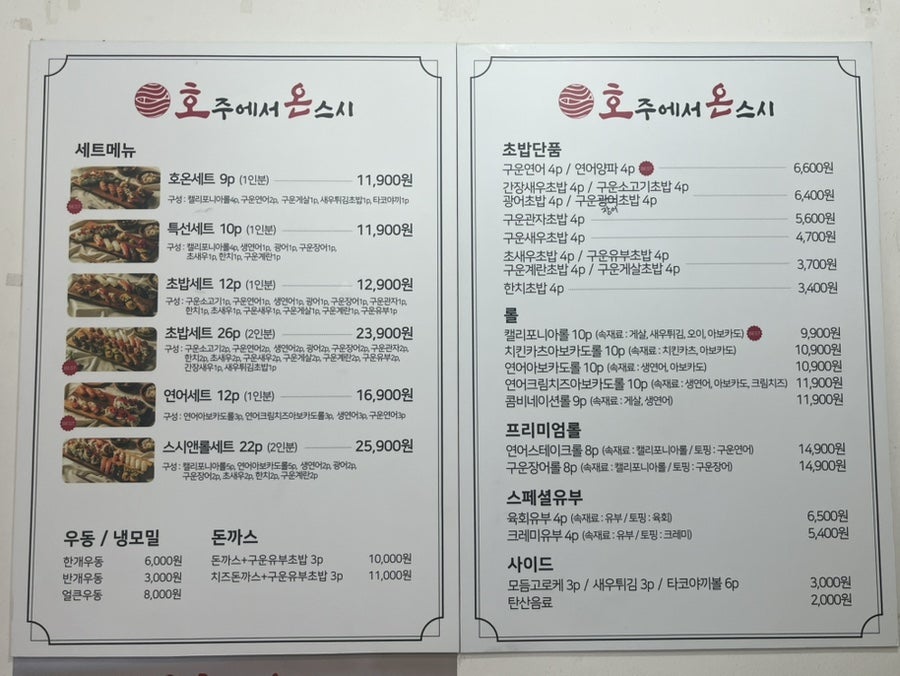 호주에서 온스시
세트메뉴
호온세트 9p (1인분) 11,900원
구성 : 캘리포니아롤4p, 구운연어2p, 구운게살1p, 새우튀김초밥1p, 타코야끼1p
BEST
특선세트 10p (1인분) 11,900원
구성 : 캘리포니아롤4p, 생연어1p, 광어1p, 구운장어1p,
초새우1p, 한치1p, 구운계란1p
초밥세트 12p (1인분) 12,900원
구성 : 구운소고기1p, 구운연어1p, 생연어1p, 광어1p, 구운장어1p, 구운관자1p,
한치1p, 초새우1p, 구운새우1p, 구운게살1p, 구운계란1p, 구운유부1p
초밥세트 26p (2인분) 23,900원
구성 : 구운소고기2p, 구운연어2p, 생연어2p, 광어2p, 구운장어2p, 구운관자2p,
한치2p, 초새우2p, 구운새우2p, 구운게살2p, 구운계란2p, 구운유부2p,
간장새우1p, 새우튀김초밥1p
BEST
연어세트 12p (1인분) 16,900원
구성 : 연어아보카도롤3p, 연어크림치즈아보카도롤3p, 생연어3p, 구운연어3p
BEST
스시앤롤세트 22p (2인분) 25,900원
구성 : 캘리포니아롤5p, 연어아보카도롤5p, 생연어2p, 광어2p,
구운장어2p, 초새우2p, 한치2p, 구운계란2p
우동 / 냉모밀
한개우동 6,000원
반개우동 3,000원
얼큰우동 8,000원
돈까스
돈까스+구운유부초밥 3p 10,000원
치즈돈까스+구운유부초밥 3p 11,000원
호주에서 온스시
초밥단품
구운연어 4p / 연어양파 4p BEST 6,600원
간장새우초밥 4p / 구운소고기초밥 4p
광어초밥 4p / 구운광어초밥 4p 6,400원
구운관자초밥 4p 5,600원
구운새우초밥 4p 4,700원
초새우초밥 4p / 구운유부초밥 4p
구운계란초밥 4p / 구운게살초밥 4p 3,700원
한치초밥 4p 3,400원
롤
캘리포니아롤 10p (속재료 : 게살, 새우튀김, 오이, 아보카도) BEST 9,900원
치킨카츠아보카도롤 10p (속재료 : 치킨카츠, 아보카도) 10,900원
연어아보카도롤 10p (속재료 : 생연어, 아보카도) 10,900원
연어크림치즈아보카도롤 10p (속재료 : 생연어, 아보카도, 크림치즈) 11,900원
콤비네이션롤 9p (속재료 : 게살, 생연어) 11,900원
프리미엄롤
연어스테이크롤 8p (속재료 : 캘리포니아롤 / 토핑 : 구운연어) 14,900원
구운장어롤 8p (속재료 : 캘리포니아롤 / 토핑 : 구운장어) 14,900원
스페셜유부
육회유부 4p (속재료 : 유부 / 토핑 : 육회) 6,500원
크레미유부 4p (속재료 : 유부 / 토핑 : 크레미) 5,400원
사이드
모듬고로케 3p / 새우튀김 3p / 타코야끼볼 6p 3,000원
탄산음료 2,000원